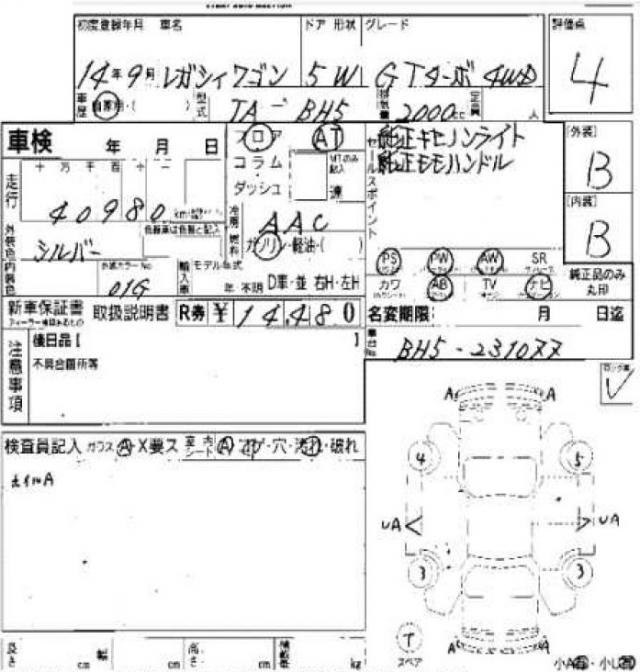 初度登録年月 車名 ドア 形状 グレード 評価点
14年9月 レガシィワゴン 5 W GTターボ 4WD 4
車歴 自家用・( ) 型式 TA-BH5 排気量 2000cc 定員 人
車検 年 月 日 フロア AT 純正キセノンライト [外装]
コラム MTのみ記入 純正モモハンドル B
ダッシュ 速 セールスポイント
走行 十万千百十一
40980
冷房 AAC [内装]
外装色 シルバー 色替車は色替と記入 燃料 ガソリン・軽油・( ) B
内装色 外装カラーNo 01G 輸入車 モデル年式 年 不明 D車・並 右H・左H
PS PW AW SR
カワ AB TV ナビ 純正品のみ丸印
新車保証書 取扱説明書 R券 ¥ 14,480 名変期限 月 日迄
注意事項 後日品【 】 車台No BH5-231077
不具合箇所等
検査員記入 ガラス A・X要ス 室内シート
A A
4 5
UA UA
3 3
T
スペア
A A
長さ cm 幅 cm 高さ cm 積載量 kg